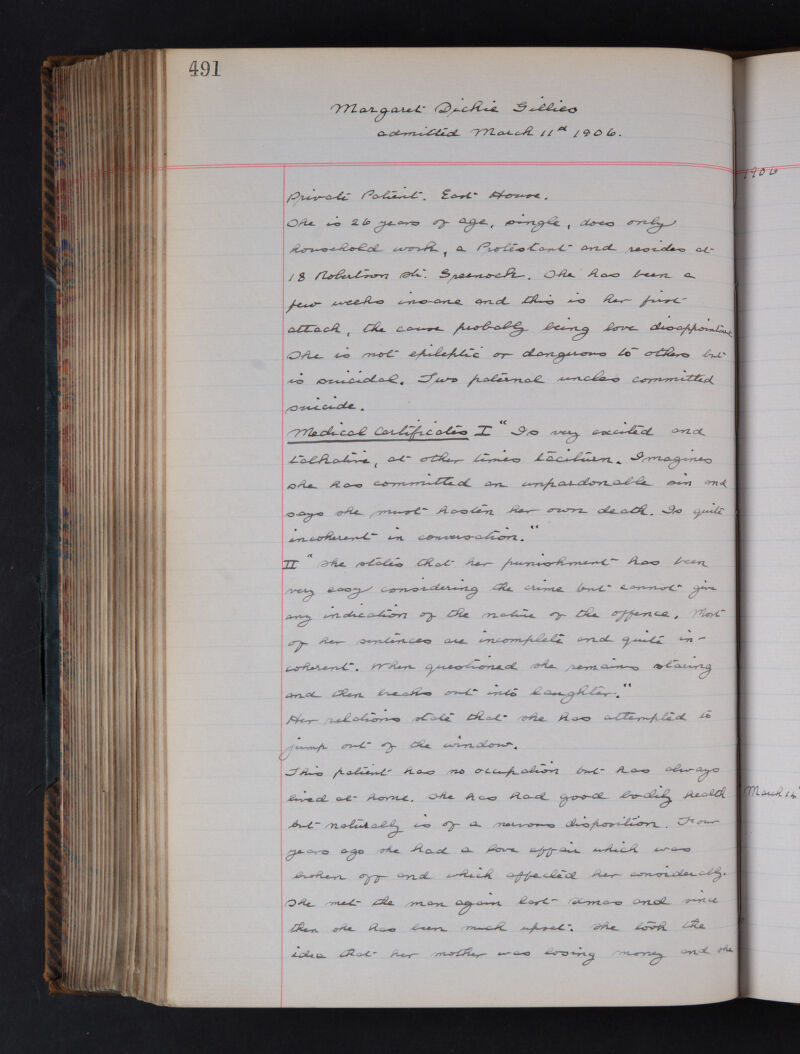 491
Margaret Dickie Gillies
admitted March 11th 1906.
1906
Private Patient. East House.
She is 26 years of age, single, does only
household work, a Protestant and resides at
18 Robertson St. Greenock. She has been a
few weeks insane and this is her first
attack, the cause probably being love disappointment.
She is not epileptic or dangerous to others but
is suicidal. Two paternal uncles committed
suicide.
Medical Certificates I "Is very excited and
talkative, at other times taciturn. Imagines
she has committed an unpardonable sin and
says she must hasten her own death. Is quite
incoherent in conversation."
II "She states that her punishment has been
very easy considering the crime but cannot give
any indication of the nature of the offence. Most
of her sentences are incomplete and quite in-
coherent. When questioned she remains staring
and then breaks out into laughter."
Her relations state that she has attempted to
jump out of the window.
This patient has no occupation but has always
lived at home. She has had good bodily health
but naturally is of a nervous disposition. Four
years ago she had a love affair which was
broken off and which affected her considerably.
She met the man again last Xmas and since
then she has been much upset. She took the
idea that her mother was losing money and she
March 14